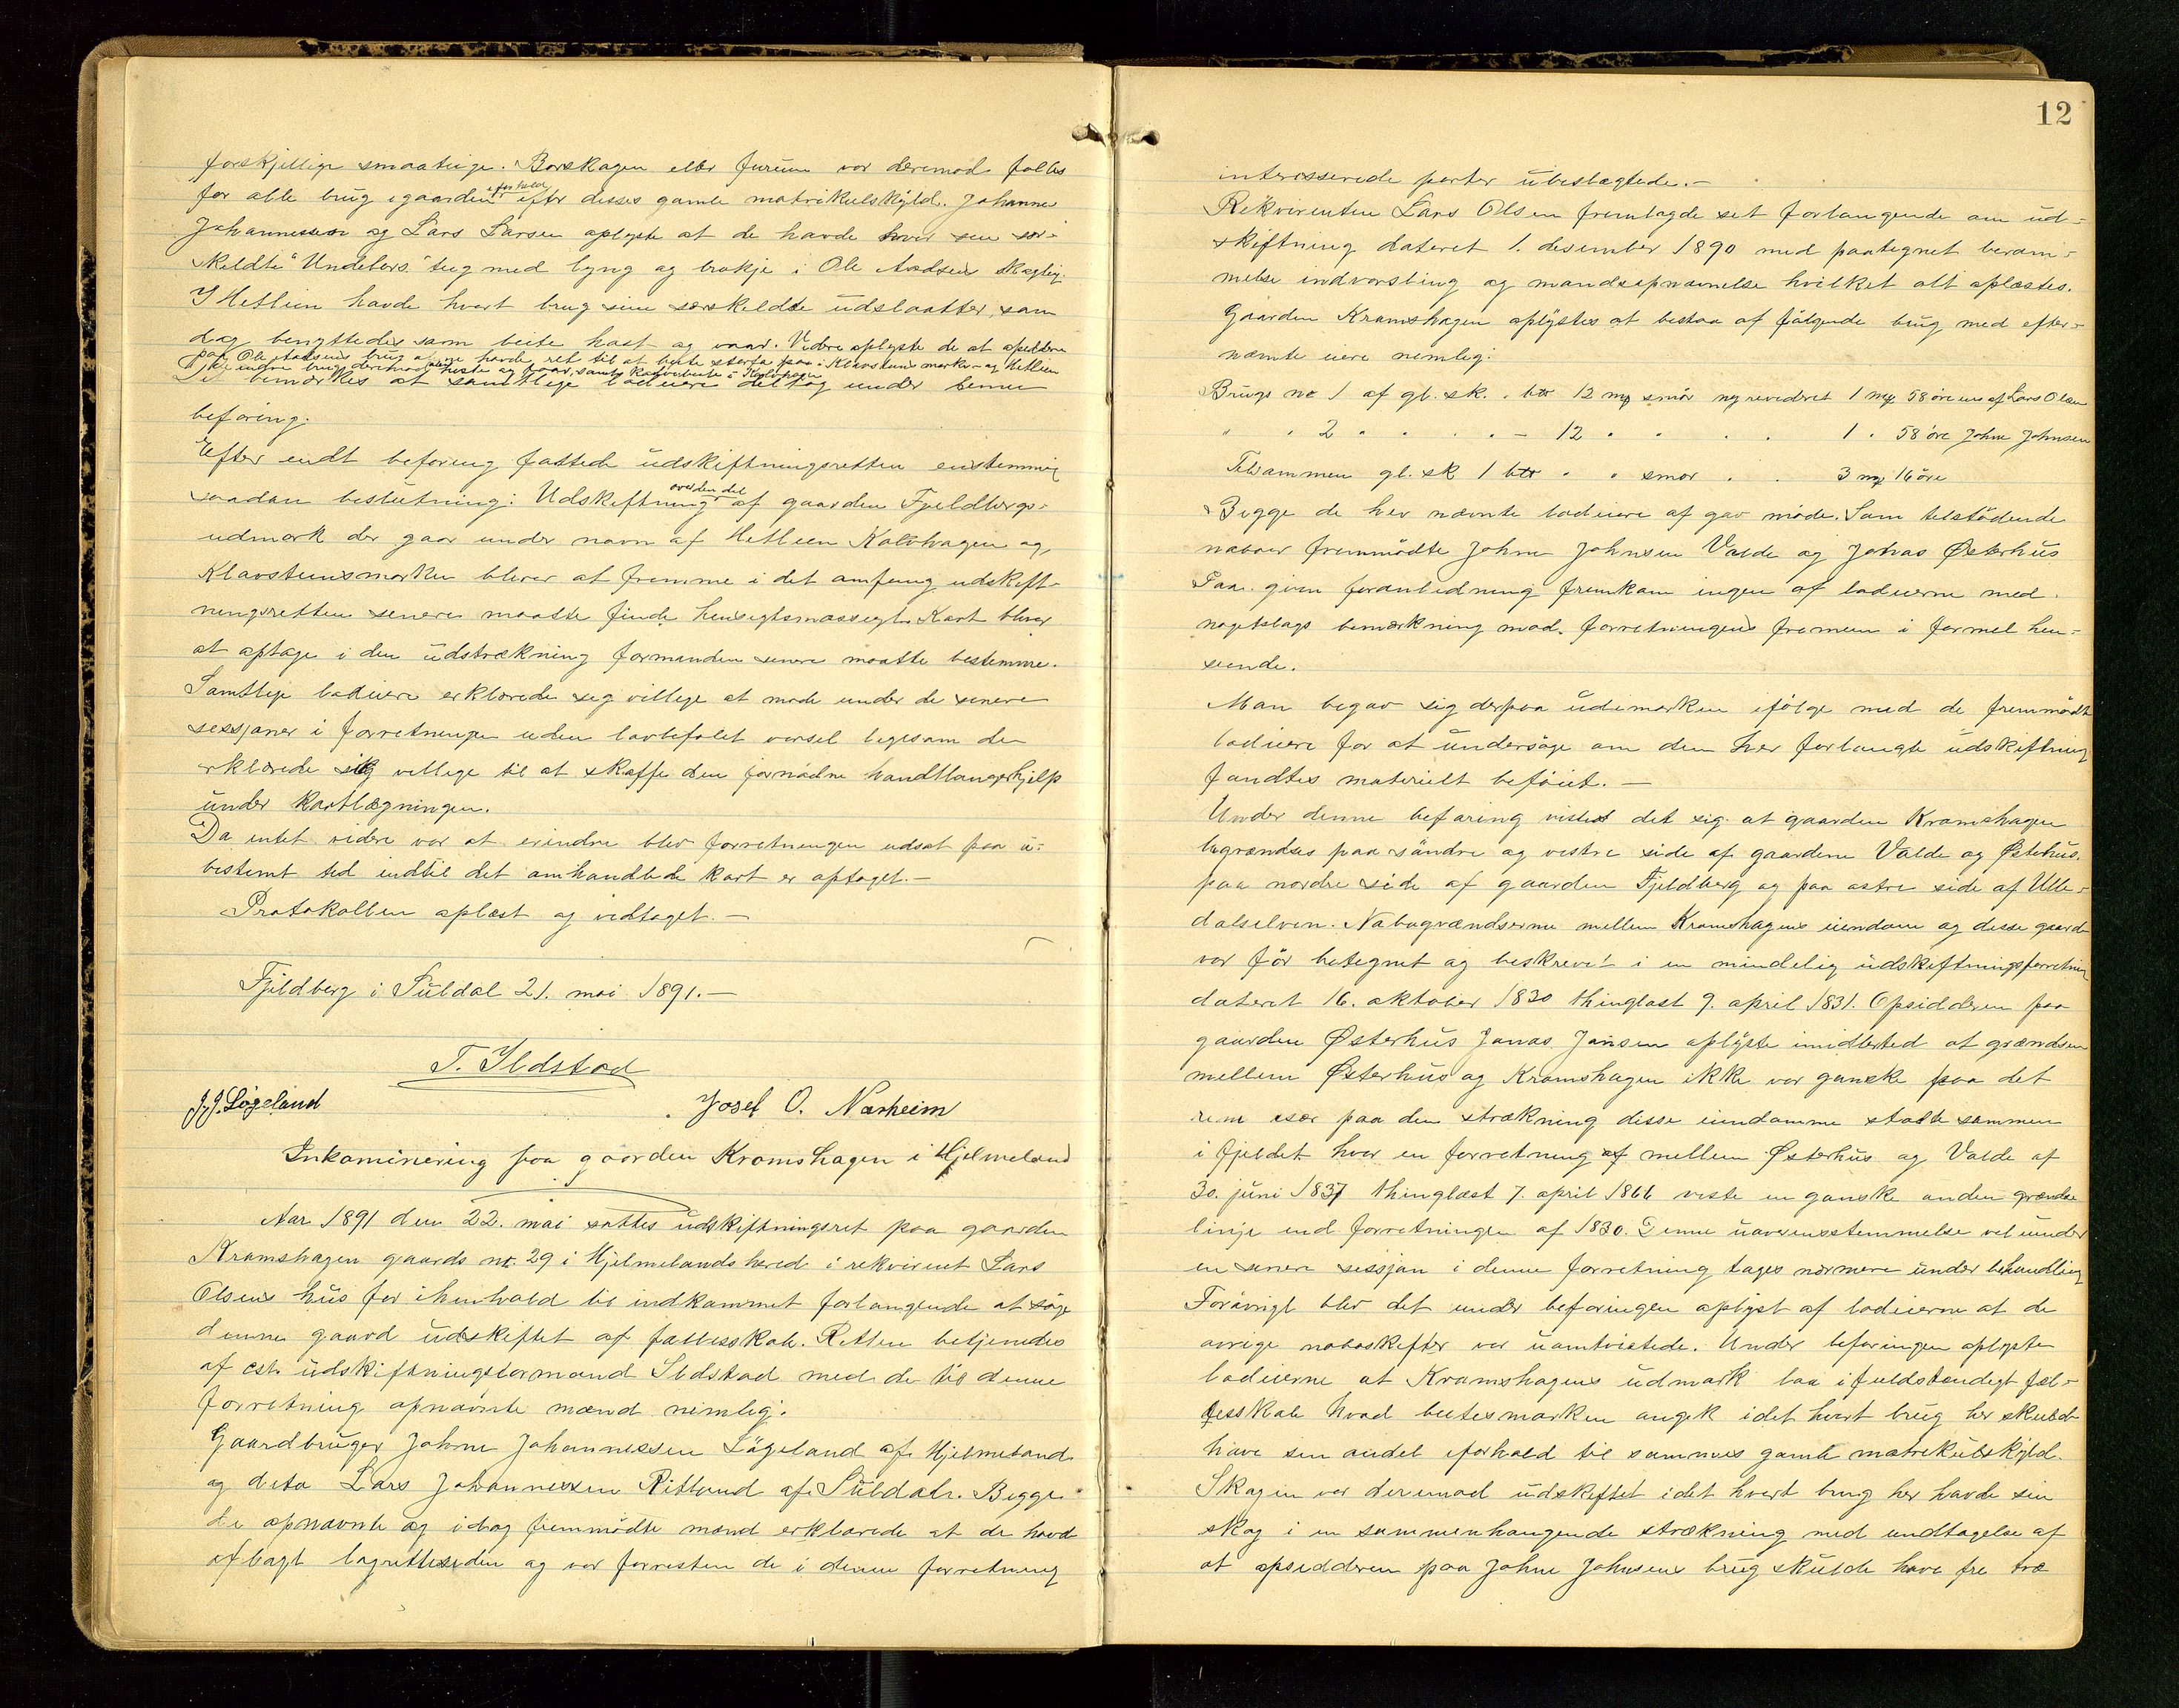 forskjellige smaateige. Barskagen eller furuen var deremod fælles
for alle brug i gaarden i forhold efter disses gamle matrikulskyld. Johannes
Johannessen og Lars Larsen oplyste at de havde hver sin sær-
skildte "Undeli" teig med lyng og brakje i Ole Aadsens skogteig.
I Hetlien havde hvert brug sine særskildte udslaatter, som
dog benyttedes som beite høst og vaar. Videre oplyste de at opsiddere
paa Ole Aadsens brug alene havde ret til at beite størfæ paa i Klavsteinsmarka og Hetlien
De bemærkes at samtlige lodeiere deltog under denne
befaring.
Efter endt befaring fattede udskiftningsretten enstemmig
saadan beslutning: Udskiftning over den del af gaarden Fjeldbergs
udmark der gaar under navn af Hetlien Kalvhagen og
Klavsteinsmarken bliver at fremme i det omfang udskift-
ningsretten senere maatte finde hensigtsmæssigt. Kart bliver
at optage i den udstrækning formanden senere maatte bestemme.
Samtlige lodeiere erklærede sig villige at møde under de senere
sessjoner i forretningen uden lovbefalet varsel ligesom de
erklærede sig villige til at skaffe den fornødne haandtlangerhjelp
under kartlægningen.
Da intet videre var at erindre blev forretningen udsat paa u-
bestemt tid indtil det omhandlede kart er optaget.—
Protokollen oplæst og vedtaget.—
Fjeldberg i Suldal 21. mai 1891.—
T. Ildstad
J. J. Løgeland Josef O. Nærheim
Inkaminering paa gaarden Kromshagen i Hjelmeland
Aar 1891 den 22. mai sattes udskiftningsret paa gaarden
Kromshagen gaards no. 29 i Hjelmelands hered i rekvirent Lars
Olsens hus for i henhold til indkommet forlangende at søge
denne gaard udskiftet af fællesskab. Retten betjenedes
af cst. udskiftningsformand Ildstad med de til denne
forretning opnævnte mænd nemlig:
Gaardbruger Johne Johannessen Løgeland af Hjelmeland
og dito Lars Johannessen Ritland af Suldal. Begge
de opnævnte og idag fremmødte mænd erklærede at de havde
aflagt lagretteseden og var forresten de i denne forretning
12
interesserede parter ubeslægtede.—
Rekvirenten Lars Olsen fremlagde set forlangende om ud-
skiftning dateret 1. desember 1890 med paategnet beram-
melse indvarsling og mandsopnævnelse hvilket alt oplæstes.
Gaarden Kromshagen oplystes at bestaa af følgende brug med efter-
nævnte eiere nemlig:
Brugs no 1 af gl. sk. . btr 12 mkr smör ny revideret 1 mk. 58 öre eies af Lars Olsen
" " 2 " . . . . - 12 " . . . 1 . 58 öre Johne Johnsen
Tilsammen gl. sk 1 btr " " smør . . 3 mk 16 öre
Begge de her nævnte lodeiere af gav møde. Som tilstødende
naboer fremmødte Johne Johnsen Valde og Jonas Østerhus
Paa given foranledning fremkom ingen af lodeierne med
nogetslags bemærkning mod forretningens fremme i formel hen-
seende.
Man begav sig derpaa udimarken ifølge med de fremmødte
lodeiere for at undersøge om den her forlangte udskiftning
fandtes materielt beføiet.—
Under denne befaring vistes det sig at gaarden Kromshagen
begrændses paa søndre og vestre side af gaardene Valde og Østehus.
paa nordre side af gaarden Fjeldberg og paa østre side af Ulle-
dalselven. Nabogrændserne mellem Kromshagens eiendom og disse gaarde
var før betegnet og beskrevet i en mindelig udskiftningsforretning
dateret 16. oktober 1830 thinglæst 9. april 1831. Opsidderen paa
gaarden Østerhus Jonas Jansen oplyste imidlertid at grændsen
mellem Østerhus og Kromshagen ikke var ganske paa det
rene især paa den strækning disse eiendomme stødte sammen
i fjeldet hvor en forretning af mellem Østerhus og Valde af
30. juni 1837 thinglæst 7. april 1866 viste en ganske anden grændse
linje end forretningen af 1830. Denne uoverensstemmelse vil under
en senere sessjon i denne forretning tages nærmere under behandling
Forøvrigt blev det under befaringen oplyst af lodeierne at de
øvrige naboskifter var uomtvistede. Under befaringen oplyste
lodeierne at Kromshagens udmark laa i fuldstændigt fæl-
lesskab hvad beitesmarken angik idet hvert brug her skulde
have sin andel i forhold til sammes gamle matrikulskyld.
Skogen var derimod udskiftet idet hvert brug her havde sin
skog i en sammenhængende strækning med undtagelse af
at opsidderen paa Johne Johnsens brug skulde have fre træ